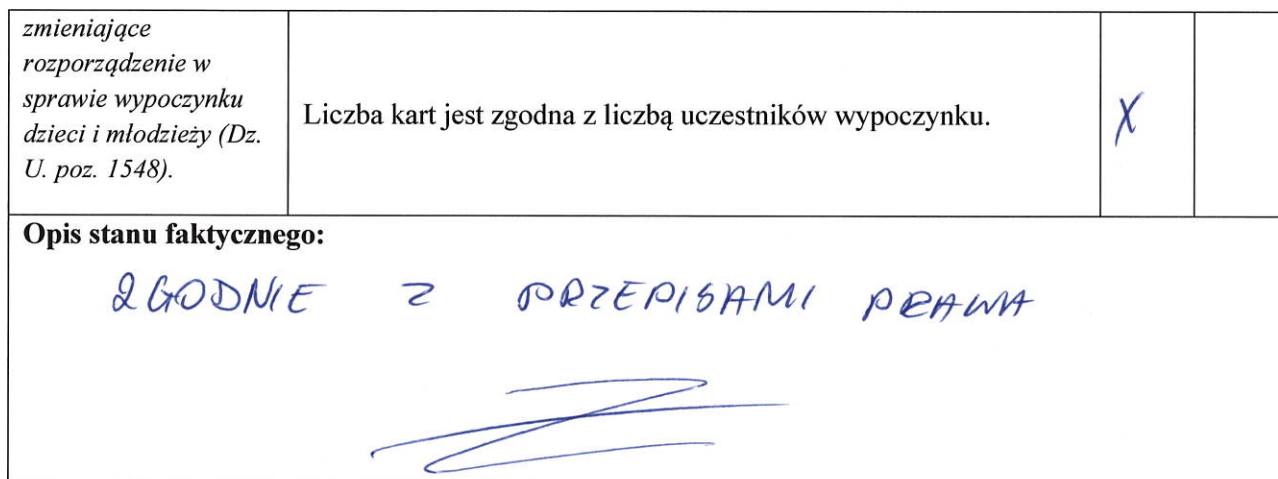 zmieniające
rozporządzenie w
sprawie wypoczynku
dzieci i młodzieży (Dz.
U. poz. 1548).
Liczba kart jest zgodna z liczbą uczestników wypoczynku.
X
Opis stanu faktycznego:
ZGODNIE Z PRZEPISAMI PRAWA